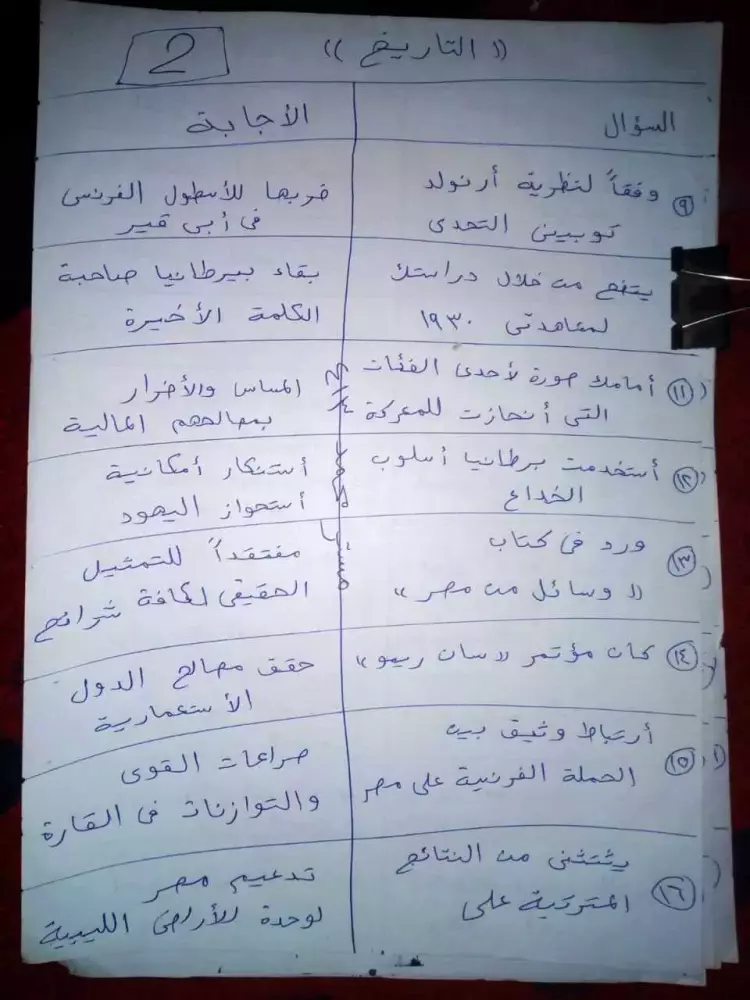 2
(( التاريخ ))
السؤال
الأجابة
٩ وفقاً لنظرية أرنولد
توبينى التحدى
ضربها للأسطول الفرنسى
فى أبى قير
يتضح من خلال دراستك
لمعاهدتى ١٩٣٠
بقاء بيرطانيا صاحبة
الكلمة الأخيرة
١١ أمامك صورة لأحدى الفئات
التى أنحازت للمعركة
المساس والأضرار
بمصالحهم المالية
١٢ أستخدمت برطانيا أسلوب
الخداع
أستنكار أمكانية
أستحواز اليهود
١٣ ورد فى كتاب
(( وسائل من مصر ))
مفتقداً للتمثيل
الحقيقى لكافة شرائح
١٤ كان مؤتمر ((سان ريمو))
حقق مصالح الدول
الأستعمارية
١٥ أرتباط وثيق بين
الحملة الفرنسية على مصر
صراعات القوى
والتوازنات فى القارة
١٦ يثتثنى من النتائج
المترتبة على
تدعيم مصر
لوحدة للأراضى الليبية